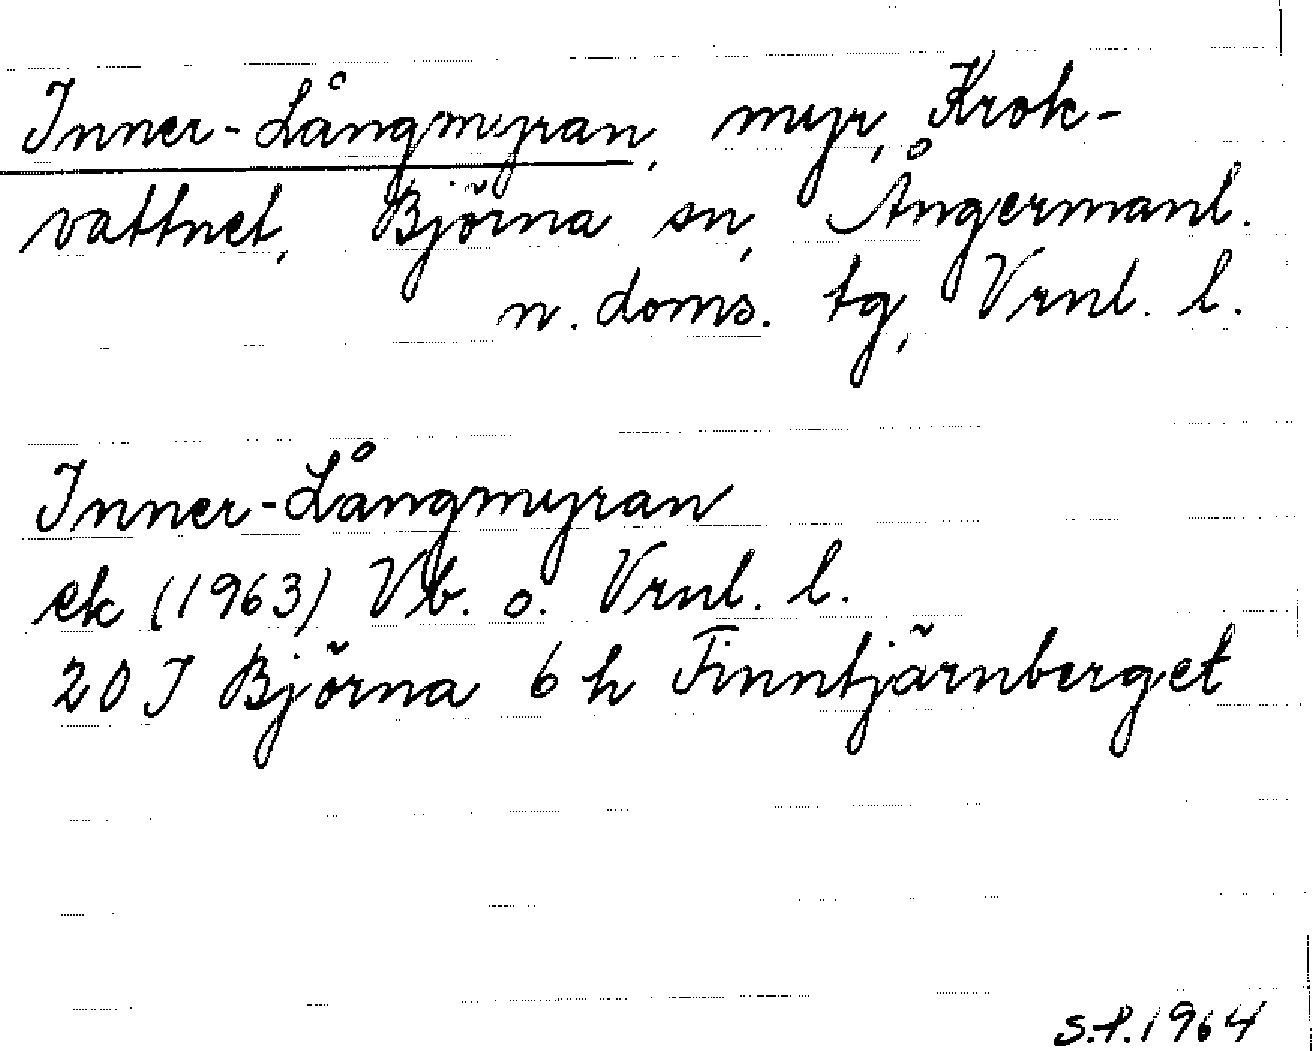 Inner-Långmyran, myr, Krok-
vattnet, Björna sn, Ångermanl.
n. doms. tg, Vrnl. l.
Inner-Långmyran
ek (1963) Vb. o. Vrnl. l.
20 I Björna 6 h Finntjärnberget
S.P. 1964